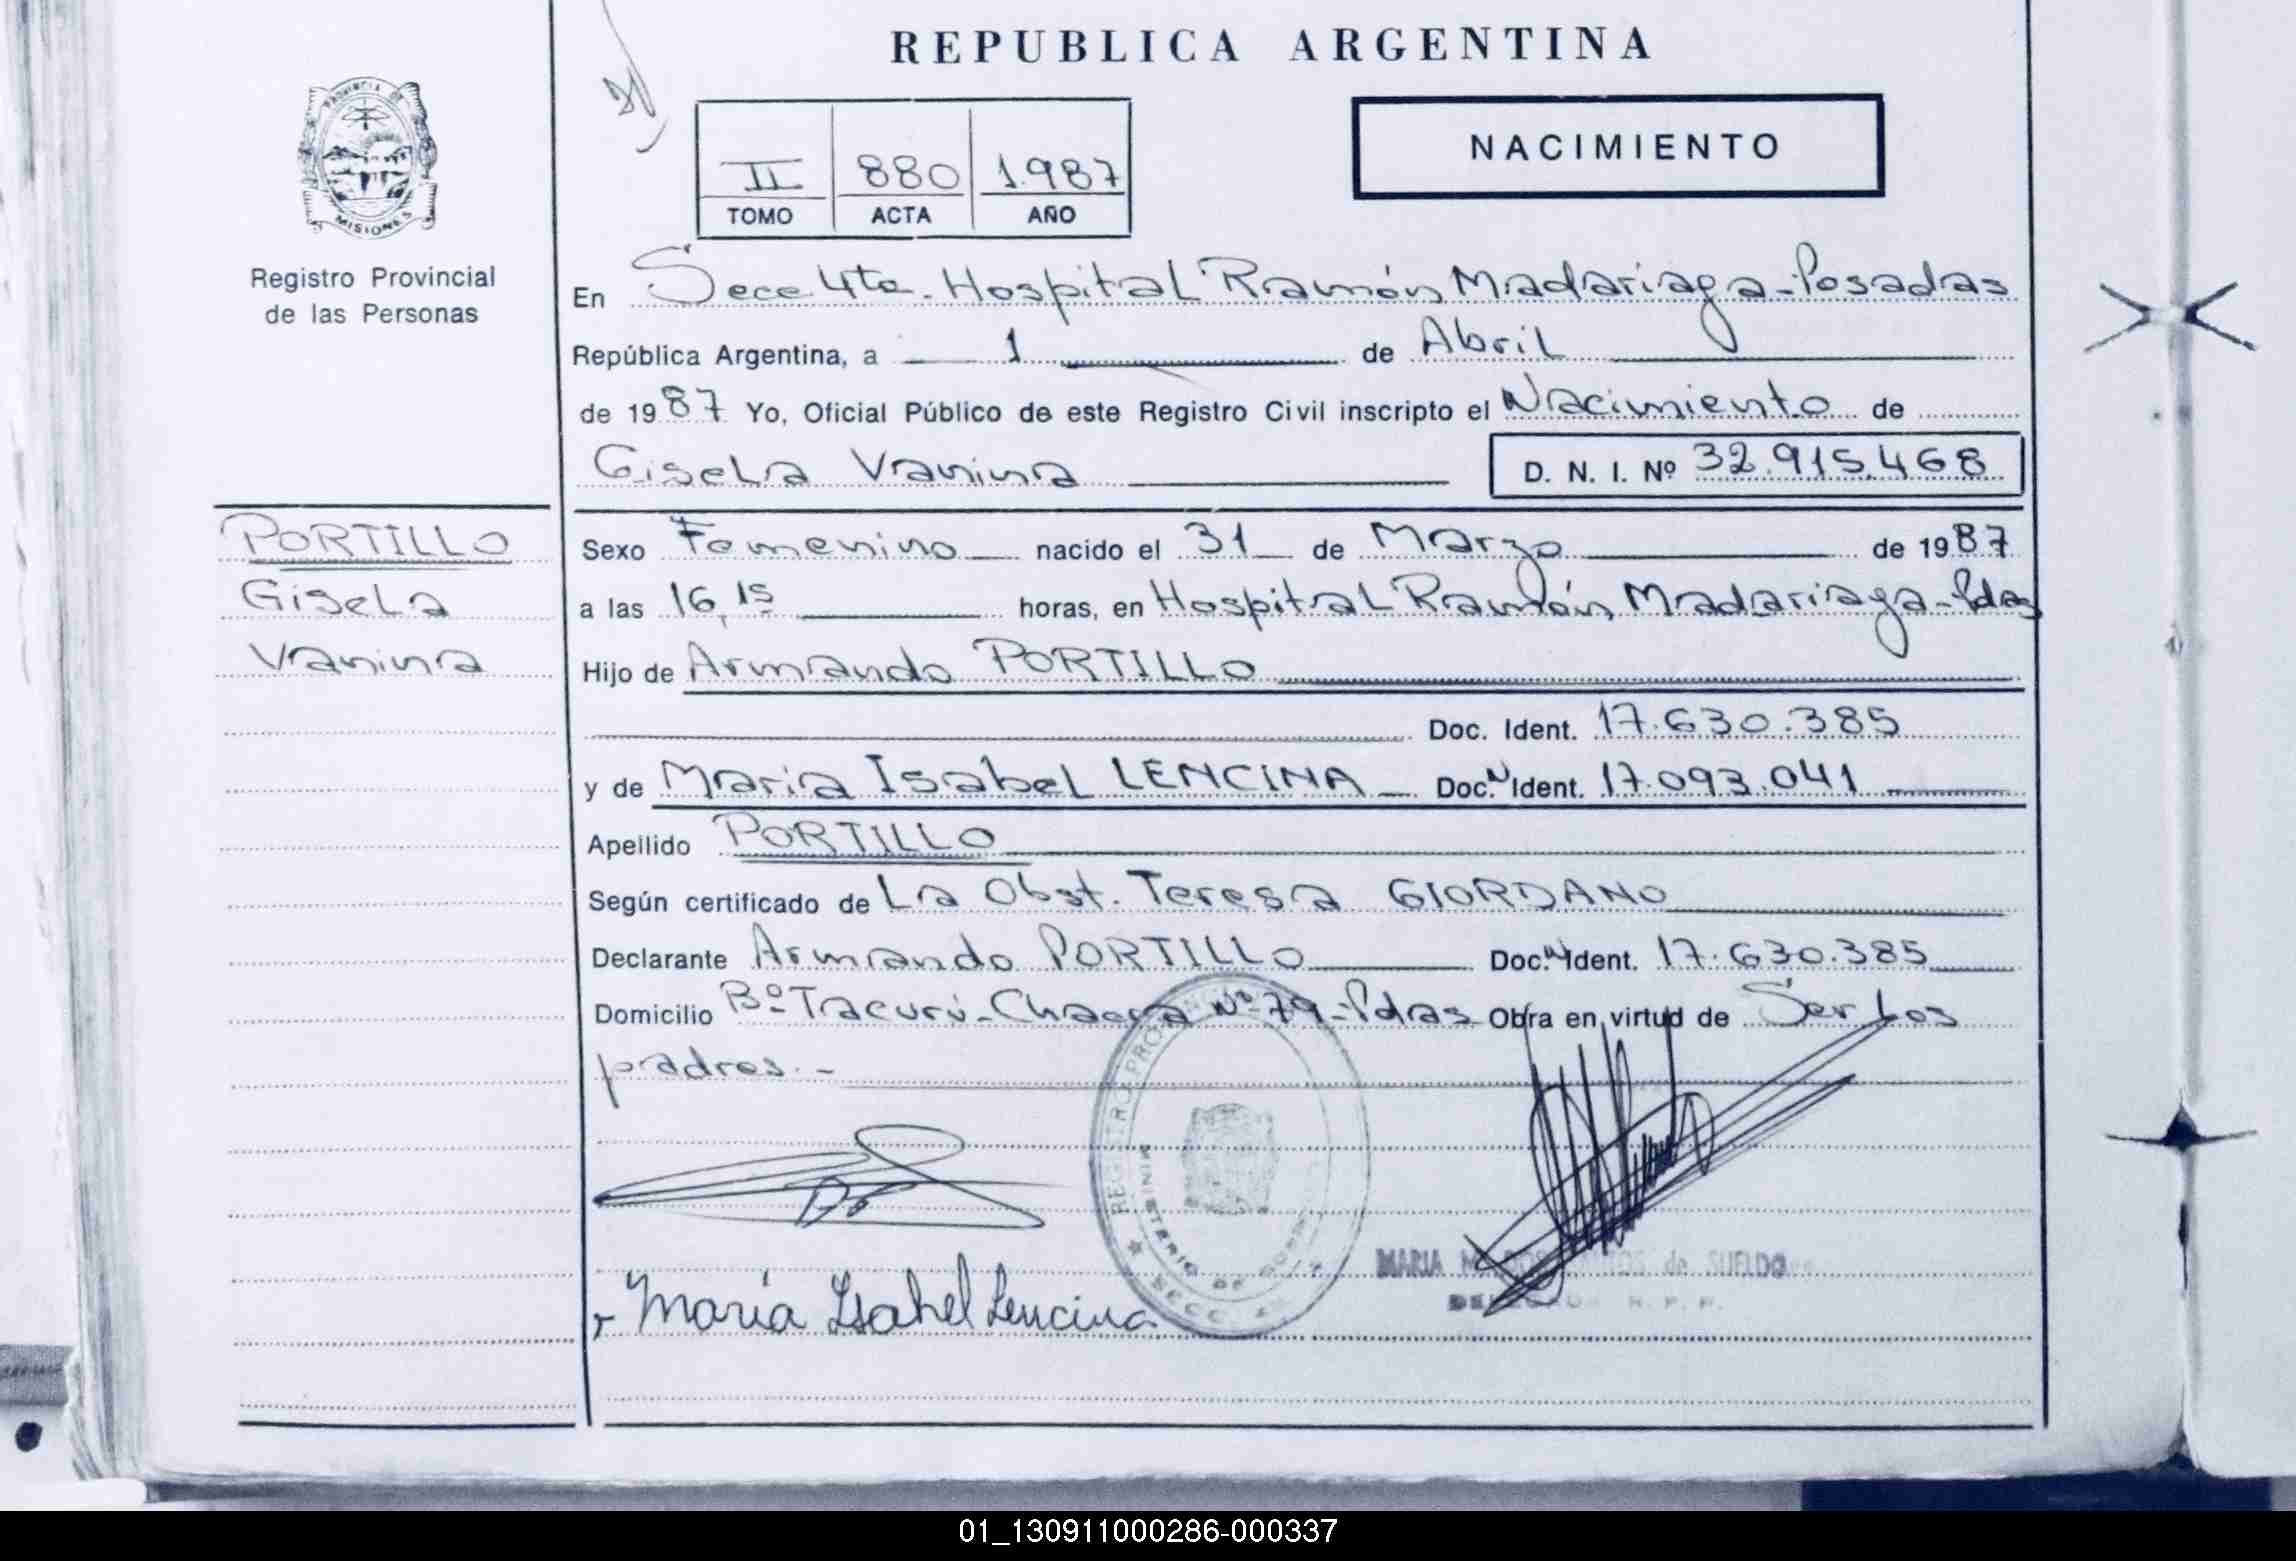 REPUBLICA ARGENTINA
PROVINCIA DE
MISIONES
Registro Provincial
de las Personas
II 880 1.987
TOMO ACTA AÑO
NACIMIENTO
En Secc. 4ta. Hospital Ramón Madariaga - Posadas
República Argentina, a 1 de Abril
de 1987 Yo, Oficial Público de este Registro Civil inscripto el Nacimiento de
Gisela Vanina D. N. I. Nº 32.915.468
PORTILLO
Gisela
Vanina
Sexo Femenino nacido el 31 de Marzo de 1987
a las 16,15 horas, en Hospital Ramón Madariaga - Pdas
Hijo de Armando PORTILLO
Doc. Ident. 17.630.385
y de Maria Isabel LENCINA Doc. N Ident. 17.093.041
Apellido PORTILLO
Según certificado de La Obst. Teresa GIORDANO
Declarante Armando PORTILLO Doc. N Ident. 17.630.385
Domicilio Bº Tacurú - Chacra Nº 79 - Pdas Obra en virtud de Ser los
padres. -
REGISTRO PROVINCIAL
MINISTERIO DE GOBIERNO
SECC. 4
MARIA de SUELDO
DELEGADA R. P. P.
Maria Isabel Lencina
01_130911000286-000337